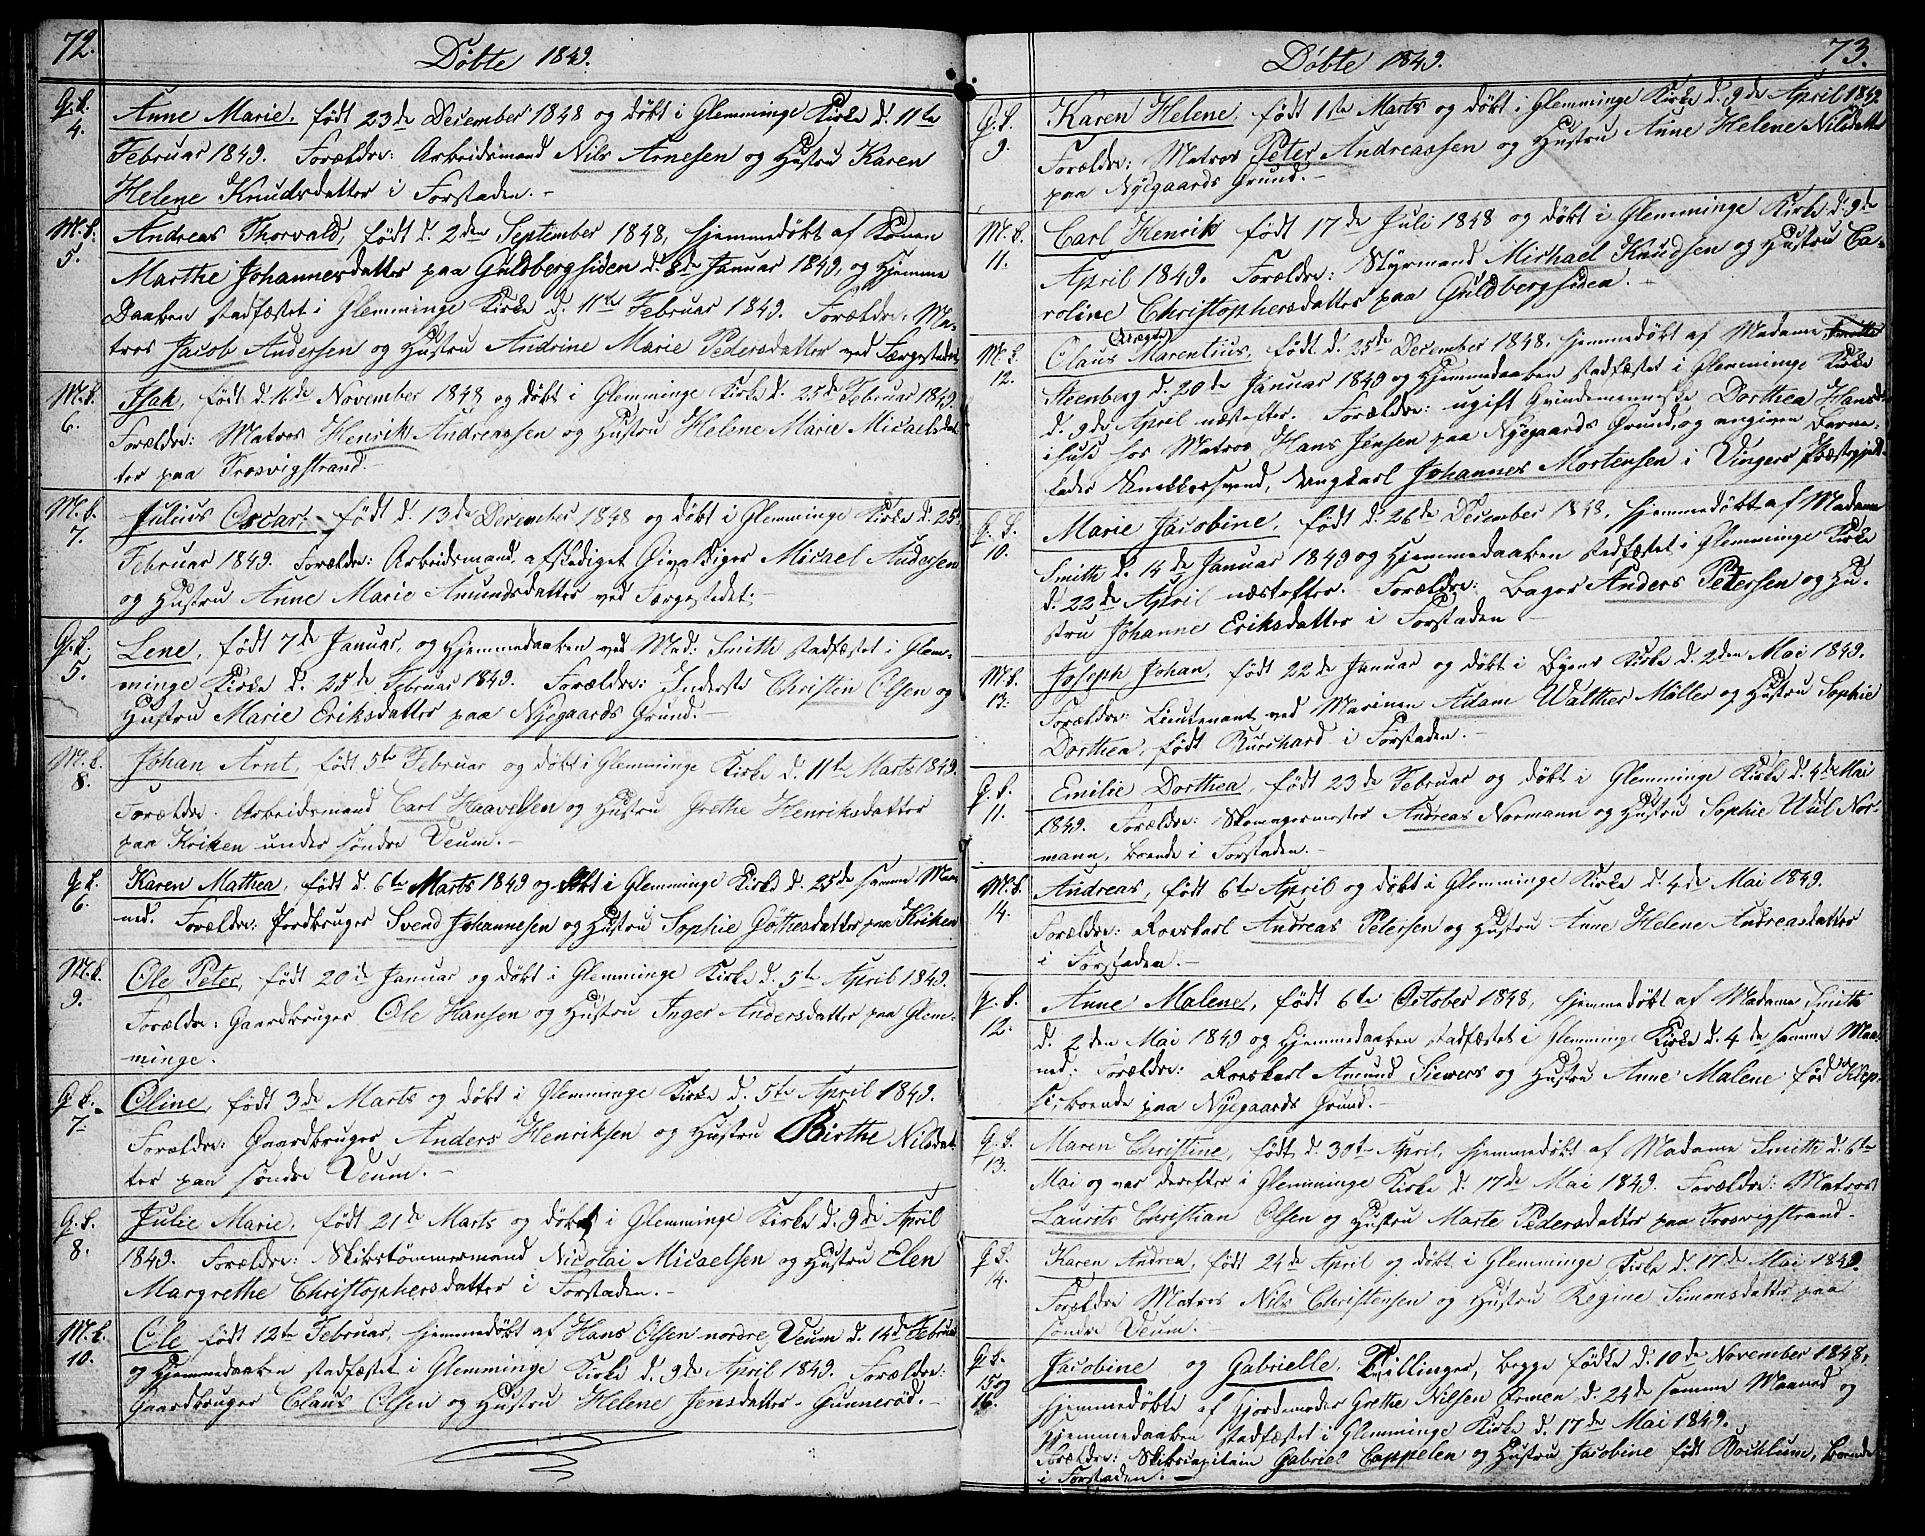 72.
Døbte 1849.
G. b. 4.
Anne Marie, født 23de December 1848 og døbt i Glemminge Kirke d. 11te
Februar 1849. Forældre: Arbeidsmand Nils Arnesen og Hustru Karen
Helene Knudsdatter i Forstaden. -
M. b. 5.
Andreas Thorvald, født d. 2den September 1848, hjemmedøbt af Konen
Marthe Johannesdatter paa Guldbergsiden d. 8de Januar 1849, og Hjemme
Daaben stadfæstet i Glemminge Kirke d. 11te Februar 1849. Forældre: Ma-
tros Jacob Andersen og Hustru Andrine Marie Pedersdatter ved Færgestedet
M. b. 6.
Isak, født d. 16de November 1848 og døbt i Glemminge Kirke d. 25de Februar 1849
Forældre: Matros Henrik Andreassen og Hustru Helene Marie Micaelsdat-
ter paa Trosvigstrand.
M. b. 7.
Julius Oscar, født d. 13de December 1848 og døbt i Glemminge Kirke d. 25de
Februar 1849. Forældre: Arbeidsmand, afskediget Givaldiger Micael Andersen
og Hustru Anne Marie Amundsdatter ved Færgestedet. -
G. b. 5.
Lene, født 7de Januar, og Hjemmedaaben ved Mad: Smith stadfæstet i Glem-
minge Kirke d. 25de Februar 1849. Forældre: Inderste Christen Olsen og
Hustru Marie Eriksdatter paa Nyegaards Grund. -
M. b. 8.
Johan Arnt, født 5te Februar og døbt i Glemminge Kirke d. 11te Marts 1849.
Forældre: Arbeidsmand Carl Haavelsen og Hustru Grethe Henriksdatter
paa Kriken under søndre Veum. -
G. b. 6.
Karen Mathea, født d. 6te Marts 1849 og døbt i Glemminge Kirke d. 25de samme Maa-
ned. Forældre: Jordbruger Svend Johannesen og Hustru Sophie Jöthesdatter paa Kriken
M. b. 9.
Ole Peter, født 20de Januar og døbt i Glemminge Kirke d. 5te April 1849.
Forældre: Gaardbruger Ole Hansen og Hustru Inger Andersdatter paa Glem-
minge.
G. b. 7.
Oline, født 3de Marts og døbt i Glemminge Kirke d. 5te April 1849.
Forældre: Gaardbruger Anders Henriksen og Hustru Birthe Nilsdat-
ter paa søndre Veum. -
G. b. 8.
Julie Marie, født 21de Marts og døbt i Glemminge Kirke d. 9de April
1849. Forældre: Skibstømmermand Nicolai Micaelsen og Hustru Elen
Margrethe Christophersdatter i Forstaden. -
M. b. 10.
Ole født 12te Februar, hjemmedøbt af Hans Olsen nordre Veum d. 14de Februar
og Hjemmedaaben stadfæstet i Glemminge Kirke d. 9de April 1849. Forældre:
Gaardbruger Claus Olsen og Hustru Helene Jensdatter - Gunnerød. -
73.
Døbte 1849.
G. b. 9.
Karen Helene, født 1ste Marts og døbt i Glemminge Kirke d. 9de April 1849
Forældre: Matros Peter Andreassen og Hustru Anne Helene Nilsdatter
paa Nyegaards Grund. -
M. b. 11.
Carl Henrik født 17de Juli 1848 og døbt i Glemminge Kirke d. 9de
April 1849. Forældre: Styrmand Michael Knudsen og Hustru Ca-
roline Christophersdatter paa Guldbergsiden. -
M. b. 12.
(uægte)
Claus Marentius, født d. 25de December 1848, hjemmedøbt af Madame
Steenberg d. 20de Januar 1849 og Hjemmedaaben stadfæstet i Glemminge Kirke
d. 9de April næstefter. Forældre: ugift Qvindemenneske Dorthea Hansd.
i huse hos Matros Hans Jensen paa Nyegaards Grund, og angiven Barne-
fader Snedkersvend, Ungkarl Johannes Mortensen i Vingers Præstegjeld.
G. b. 10.
Marie Jacobine, født d. 26de December 1848, hjemmedøbt af Madame
Smith d. 14de Januar 1849 og Hjemmedaaben stadfæstet i Glemminge Kirke
d. 22de April næstefter. Forældre: Bager Anders Petersen og Hu-
stru Johanne Eriksdatter i Forstaden -
M. b. 13.
Joseph Johan, født 22de Januar og døbt i Byens Kirke d. 2den Mai 1849.
Forældre: Lieutenant ved Marinen Adam Walther Müller og Hustru Sophie
Dorthea, født Burchard i Forstaden. -
G. b. 11.
Emilie Dorthea, født 23de Februar og døbt i Glemminge Kirke d. 4de Mai
1849. Forældre: Skomagermester Andreas Normann og Hustru Sophie Uul Nor-
mann, boende i Forstaden. -
M. b. 14.
Andreas, født 6te April og døbt i Glemminge Kirke d. 4de Mai 1849.
Forældre: Roerskarl Andreas Petersen og Hustru Anne Helene Andreasdatter
i Forstaden. -
G. b. 12.
Anne Malene, født 6te October 1848, hjemmedøbt af Madame Smith
d. 2den Mai 1849 og Hjemmedaaben stadfæstet i Glemminge Kirke d. 4de samme Maa-
ned. Forældre: Roerskarl Amund Siewers og Hustru Anne Malene fød Klep-
boende paa Nyegaards Grund. -
G. b. 13.
Maren Christine, født d. 30te April, hjemmedøbt af Madame Smith d. 6te
Mai og var derefter i Glemminge Kirke d. 17de Mai 1849. Forældre: Matros
Laurits Christian Olsen og Hustru Marte Pedersdatter paa Trosvigstrand -
G. b. 14.
Karen Andrea, født 24de April og døbt i Glemminge Kirke d. 17de Mai 1849.
Forældre Matros Nils Christensen og Hustru Regine Simonsdatter paa
søndre Veum.
G. b. 15 og 16.
Jacobine og Gabrielle, Tvillinger, begge fødte d. 10de November 1848,
hjemmedøbte af Gjordemoder Grethe Nilsen Ormen d. 24de samme Maaned og
Hjemmedaaben stadfæstet i Glemminge Kirke d. 17de Mai 1849.
Forældre: Skibscapitain Gabriel Cappelen og Hustru Jacobine født Bochlum, boende
i Forstaden. -